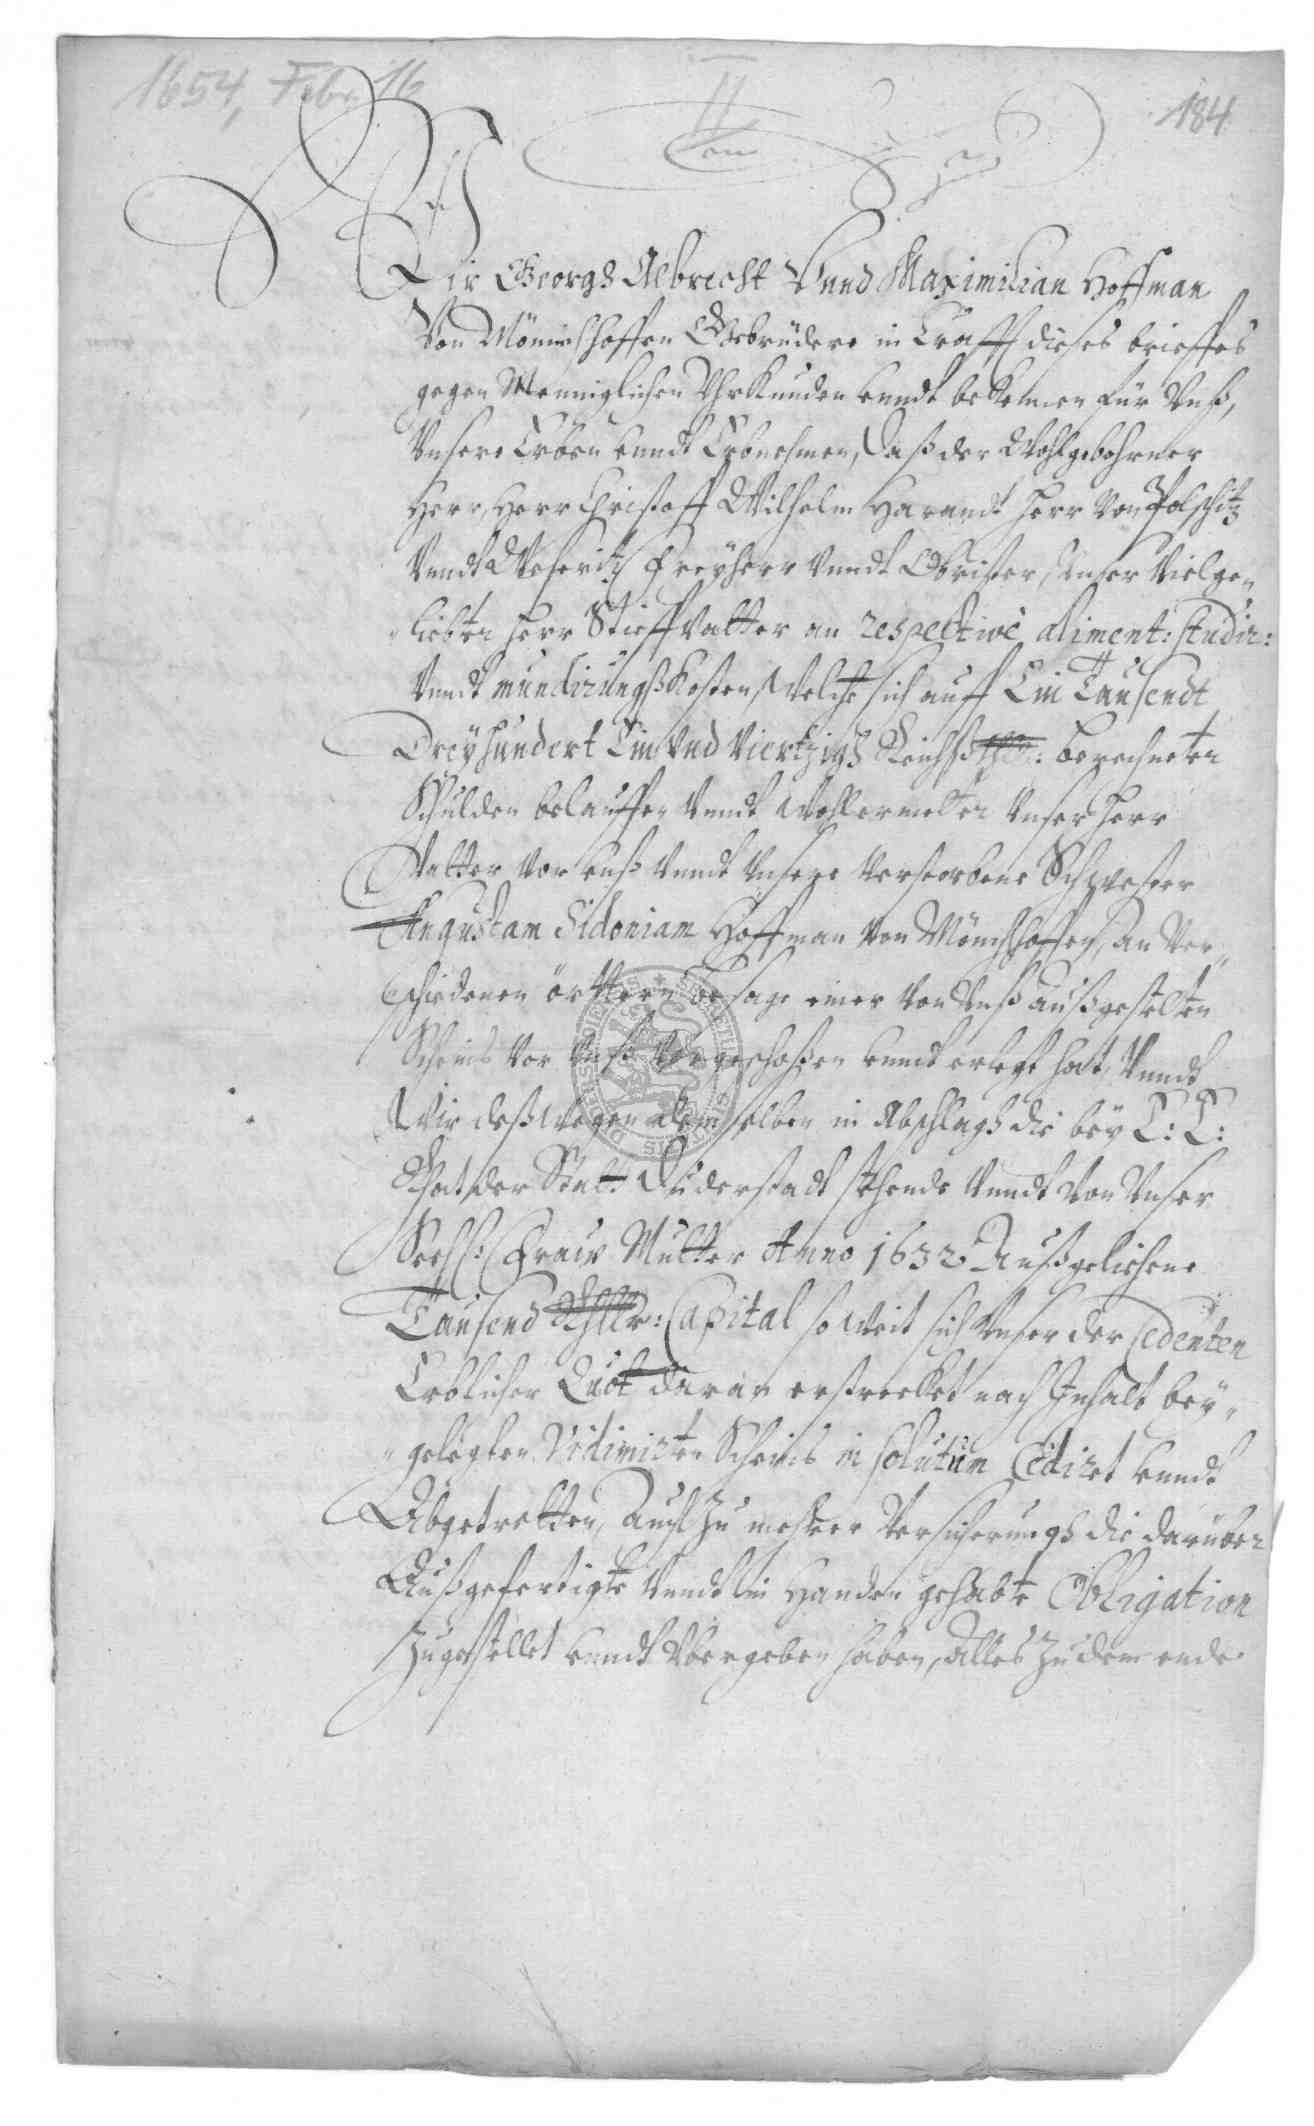 1654, Febr. 16
II
184
Wir Georgh Albrecht Vnnd Maximilian Hoffman
Von Mönnichhoffen Gebrüdere in Crafft dieses brieffes
gegen Menniglichen Vhrkunden vnndt bekennen für Vnß,
Vnsere Erben vnndt Erbnehmen, Daß der Wohlgebohrner
Herr, Herr Christoff Wilhelm Harandt Herr Von Polschitz
Vnndt Weseritz Freyherr Vnndt Obrister, Vnser Vielge„
„liebter Herr Stieffvatter an respectivè aliment: studir:
Vnndt mundirungßkosten, Welche sich auff Ein Tausendt
Dreyhundert Ein Vnd Viertzigh Reichßthlr: berechneter
Schulden belauffen Vnndt Wohlermelter Vnser Herr
Vatter Vor vnß Vnndt Vnsere Verstorbene Schwester
Augustam Sidoniam Hoffman Von Mönchhoffen, an Ver„
schiedenen örttern besage einer Von Vnß außgestelten
Scheins Vor Vnß Vorgeschoßen vnndt erlegt hat, Vnndt
Wir deßwegen demselben in Abschlagh die bey E: E:
Rhat der Statt Duderstadt stehende Vnndt Von Vnser
Seel: Fraw Mutter Anno 1632 Außgeliehene
Tausend Rthllr: Capital so weit sich Vnser der Cedenten
Erblicher Quot daran erstrecket nach Inhalt bey„
„gelegten Vidimirten Scheins in solutum Cedirt vnndt
Abgetretten, auch Zu mehrer Versicherungh die darüber
Außgefertigte Vnndt in Handen gehabte Obligation
Zugestellet vnndt Vbergeben haben, alles Zu dem ende